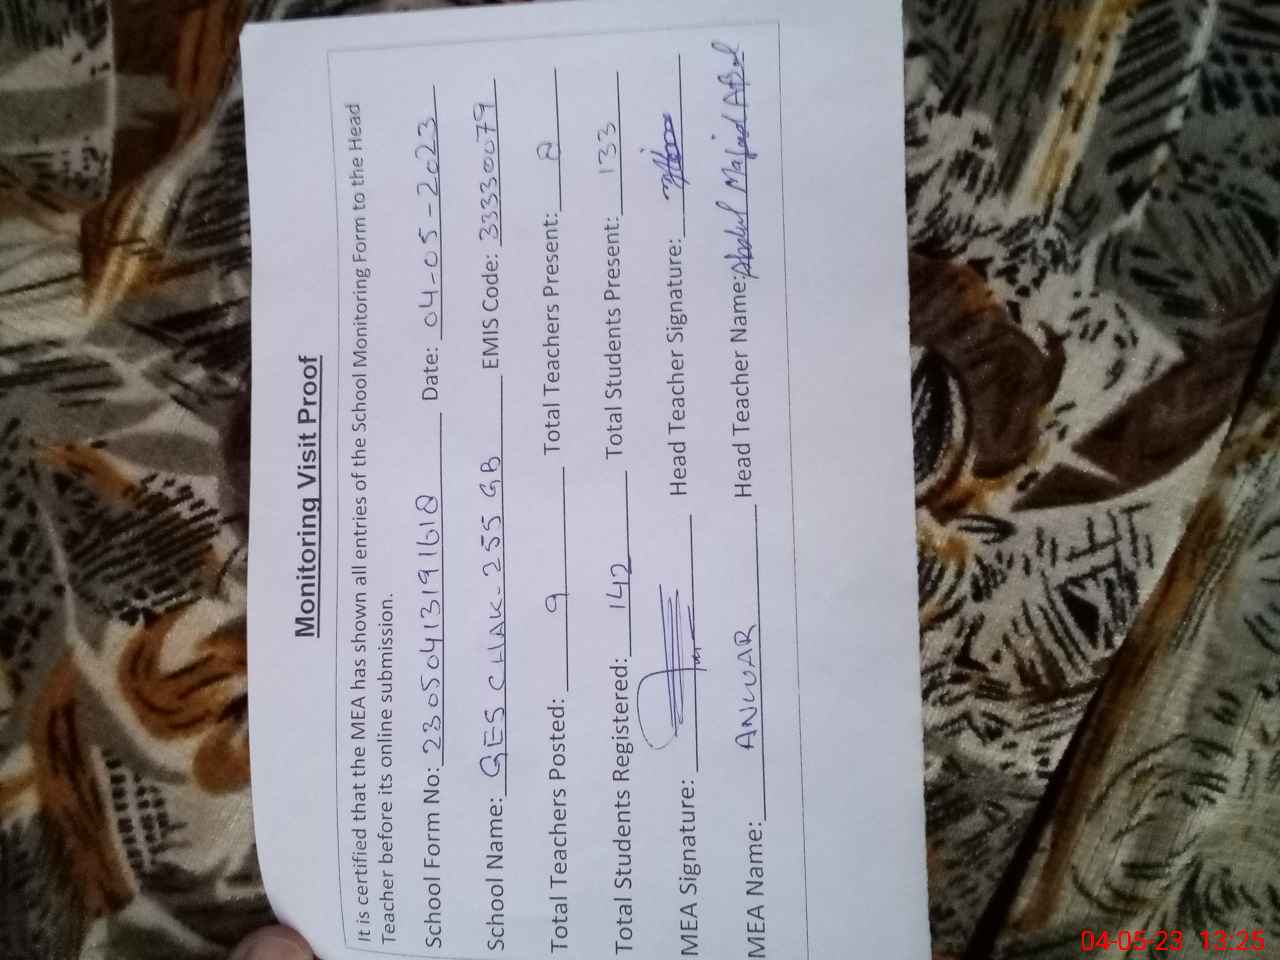 Monitoring Visit Proof
It is certified that the MEA has shown all entries of the School Monitoring Form to the Head
Teacher before its online submission.
School Form No: 2305041319161Q Date: 04-05-2023
School Name: GES CHAK-255 GB EMIS Code: 33330079
Total Teachers Posted: 9 Total Teachers Present: 8
Total Students Registered: 142 Total Students Present: 133
MEA Signature: Head Teacher Signature:
MEA Name: ANWAR Head Teacher Name: Abdul Majeed
04-05-23 13:25